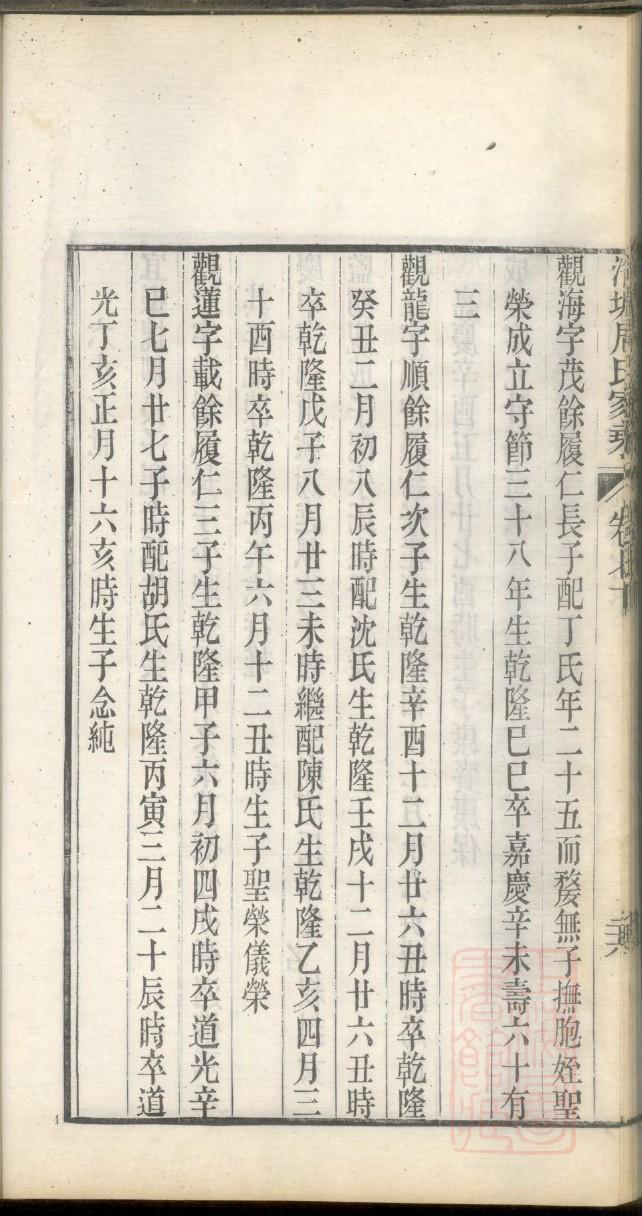 周氏家乘
觀海字茂餘履仁長子配丁氏年二十五而嫠無子撫胞姪聖
榮成立守節三十八年生乾隆己巳卒嘉慶辛未壽六十有
三
觀龍字順餘履仁次子生乾隆辛酉十二月廿六丑時卒乾隆
癸丑二月初八辰時配沈氏生乾隆壬戌十二月廿六丑時
卒乾隆戊子八月廿三未時繼配陳氏生乾隆乙亥四月三
十酉時卒乾隆丙午六月十二丑時生子聖榮儀榮
觀蓮字載餘履仁三子生乾隆甲子六月初四戌時卒道光辛
巳七月廿七子時配胡氏生乾隆丙寅三月二十辰時卒道
光丁亥正月十六亥時生子念純